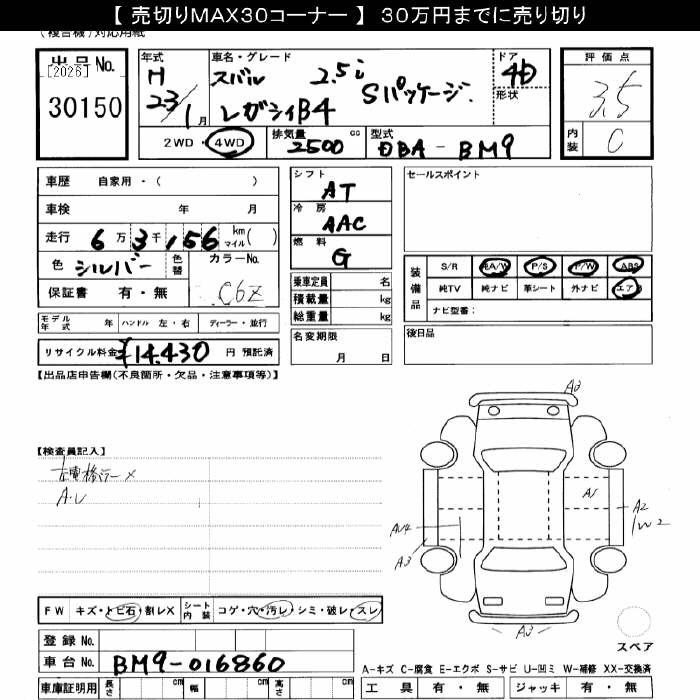 【 売切りMAX30コーナー 】 30万円までに売り切り
(複合機)対応用紙
出品No.
[2026]
30150
年式
H
23/1月
車名・グレード
スバル 2.5i
レガシィB4 Sパッケージ.
ドア
4D
形状
2WD・4WD
排気量 cc
2500
型式
DBA-BM9
評価点
3.5
内装
C
車歴 自家用・( )
車検 年 月
走行 6万3千156 km マイル( )
色 シルバー 色替
カラーNo.
C6Z
保証書 有・無
シフト
AT
冷房
AAC
燃料
G
乗車定員 名
積載量 kg
総重量 kg
セールスポイント
装備品
S/R 純A/W P/S P/W ABS
純TV 純ナビ 革シート 外ナビ エアB
ナビ型番:
モデル年式 年 ハンドル 左・右 ディーラー・並行
リサイクル料金 ¥14,430 円 預託済
名変期限
月 日
後日品
【出品店申告欄(不良箇所・欠品・注意事項等)】
【検査員記入】
A・U
A3
A1
A2
W2
AU4
A3
A3
スペア
FW キズ・トビ石・割レX シート内装 コゲ・穴・汚レ・シミ・破レ・スレ
登録No.
車台No. BM9-016860
車庫証明用 長さ cm 幅 cm 高さ cm
A-キズ C-腐食 E-エクボ S-サビ U-凹ミ W-補修 XX-交換済
工具 有・無 ジャッキ 有・無